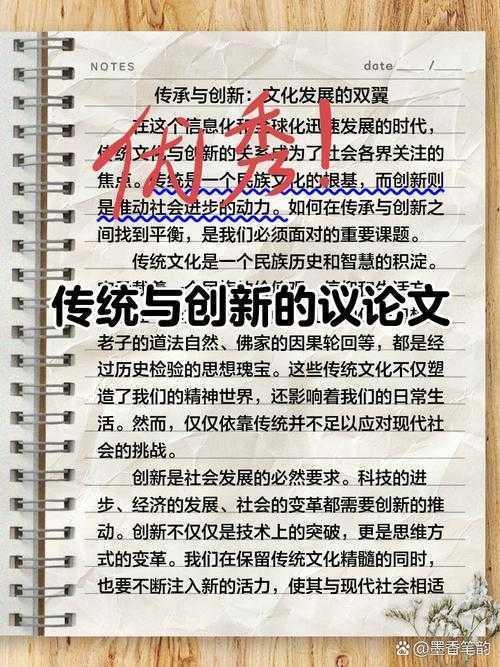 NOTES
date ___ / ___
传承与创新：文化发展的双翼
在这个信息化和全球化迅速发展的时代，
传统文化与创新的关系成为了社会各界关注的
焦点。传统是一个民族文化的根基，而创新则
是推动社会进步的动力。如何在传承与创新之
间找到平衡，是我们必须面对的重要课题。
优秀！
传统文化是一个民族历史和智慧的积淀。
传统与创新的议论文
老子的道法自然、佛家的因果轮回等，都是经
过历史检验的思想瑰宝。这些传统文化不仅塑
造了我们的精神世界，还影响着我们的日常生
活。然而，仅仅依靠传统并不足以应对现代社
会的挑战。
创新是社会发展的必然要求。科技的进
步、经济的发展、社会的变革都需要创新的推
动。创新不仅仅是技术上的突破，更是思维方
式的变革。我们在保留传统文化精髓的同时，
也要不断注入新的活力，使其与现代社会相适
@墨香笔韵